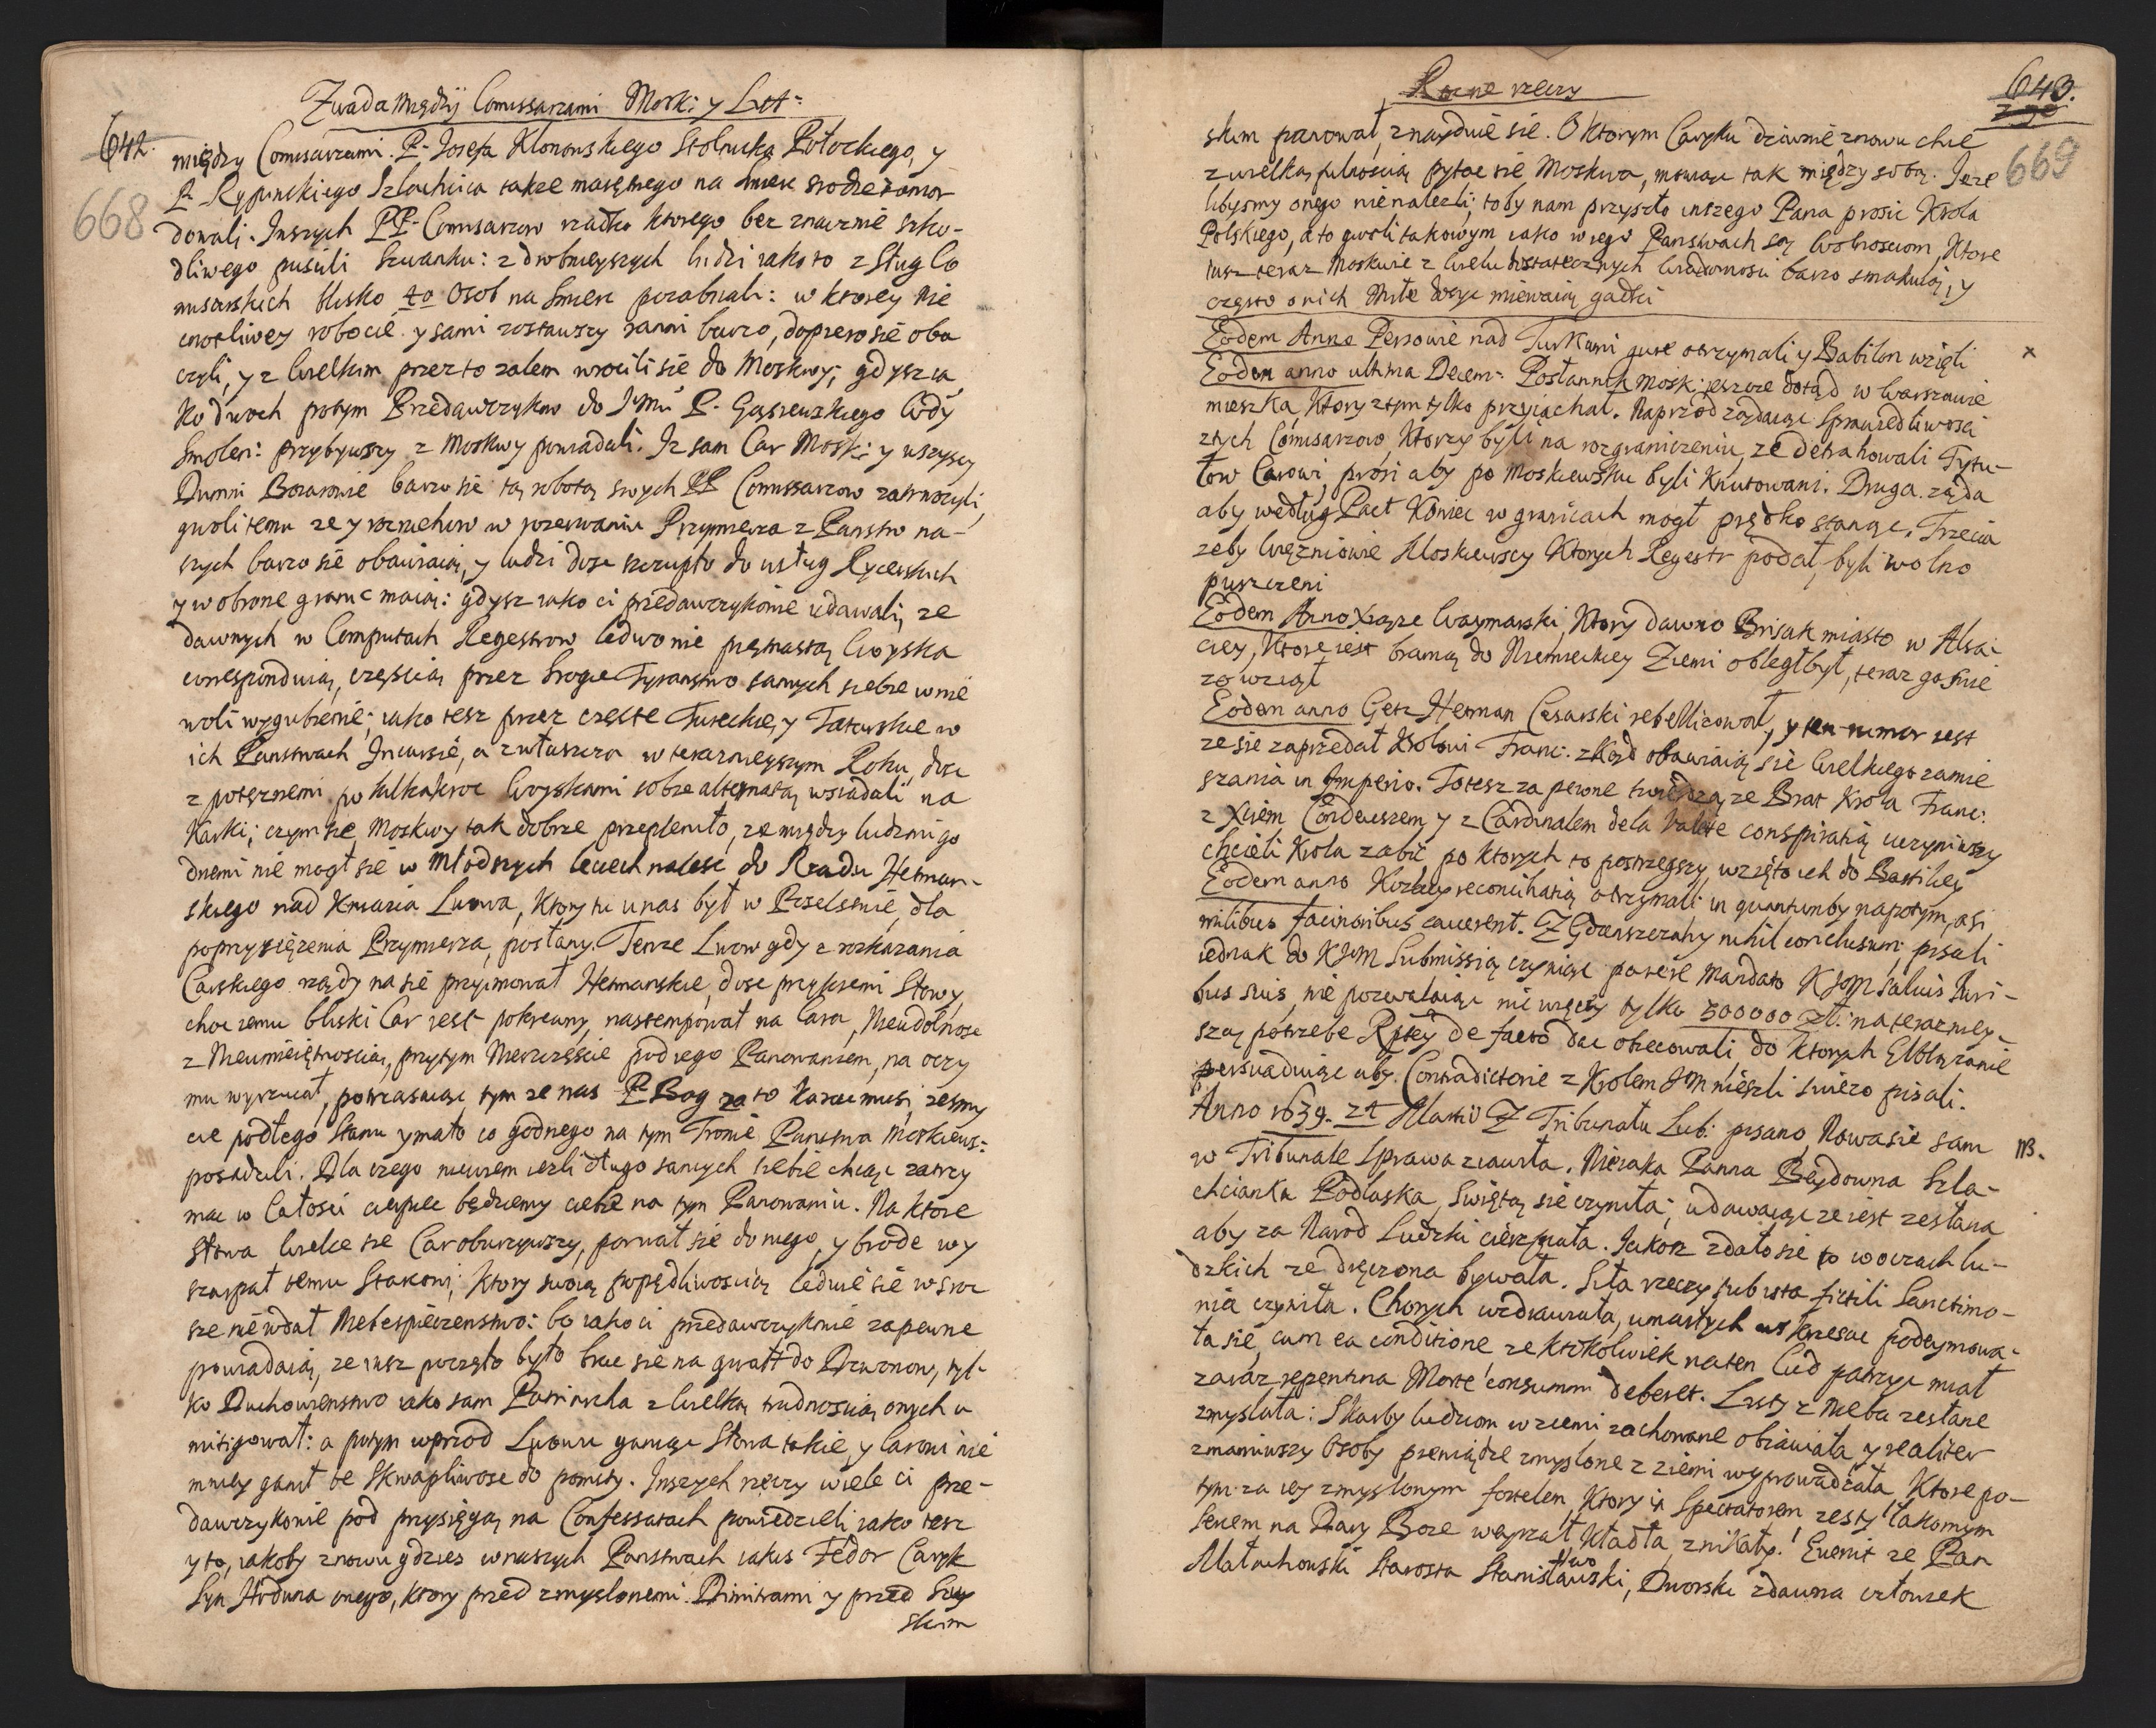 Zwada między Comissarzami Mosk: y Lit:
642.
668
między Comisarzami. P. Jozefa Klonowskiego Stolnika Połockiego, y
P. Rypinskiego Szlachcica także mającnego na smierc srodze zamor-
dowali. Inszych PP. Comisarzow rzadko ktorego bez znacznie szko-
dliwego puscili szwanku: z drobnieyszych ludzi iako to z Sług Co
misarskich blisko 40 Osob na smierc pozabiiali: w ktorey nie
cnotliwey robocie y sami zostawszy ranni barzo, dopiero sie oba
czyli, y z wielkim przez to zalem wrocili sie do Moskwy; gdysz ia
ko dwoch potym Przedawczykow do JMci P. Gąsiewskiego Wdy
Smolen: przybywszy z Moskwy powiadali. Iz sam Car Moski: y wszyscy
Dumni Boiarowie barzo sie tą robotą swych PP Comissarzow zatrwozyli,
gwoli temu ze y rozruchow w przerwaniu Przymierza z Panstw na-
szych barzo sie obawiaią, y ludzi dosc szczupło do usług Rycerskich
y w obrone granic maią: gdysz iako ci przedawczykowie udawali, ze
dawnych w Computach Regestrow ledwo nie piętnastą Woyska
correspondują, częscią przez srogie Tyranstwo samych siebie w nie
woli wygubienie; iako tesz przez częste Tureckie, y Tatarskie w
ich Panstwach Incursie, a zwłaszcza w terazniejszym Roku, dosc
z potęznemi po kilkakroc Woyskami sobie alternatą wsiadali na
Karki; czym sie Moskwy tak dobrze przeplenito, ze między ludzmi go
dnemi nie mogł sie w Młodszych leciech nalesc do Rządu Hetman-
skiego nad Kniazia Lwowa, ktory tu u nas był w Poselstwie, dla
poprzysięzenia Przymierza, posłany. Tenze Lwow gdy z rozkazania
Carskiego rządy na sie przyimował Hetmanskie, dosc przykremi Słowy,
choc iemu bliski Car iest pokrewny, nastempował na Cara, Nieudolnosc
z Nieumieiętnoscią, przytym Nieszczęscie pod iego Panowaniem, na oczy
mu wyrzucał, potrząsaiąc tym ze nas P. Bog za to karac musi, zesmy
cie podłego Stanu y mało co godnego na tym Tronie Panstwa Moskiews:
posadzili. Dla czego niewiem iezli długo samych siebie chcąc zatrzy
mac w Całosci cierpiec będziemy ciebie na tym Panowaniu. Na ktore
słowa wielce sie Car oburzywszy, porwał sie do niego, y brode wy
szarpał temu Starcowi; ktory swoią popędliwoscią ledwie sie w sro
sze nie wdał Niebespieczenstwo: bo iako ci przedawczykowie zapewne
powiadaią, ze iusz poczęto było brac sie na gwałt do Dzwonow, tyl-
ko Duchowienstwo iako sam Patriarcha z wielką trudnoscią onych u
mitigował: a potym wprzod Lwowu ganiąc Słowa takie, y Carowi nie
mniey ganił te skwapliwosc do pomsty. Inszych rzeczy wiele ci prze-
dawczykowie pod przysięgą na Confessatach powiedzieli iako tesz
y to, iakoby znowu gdzies w naszych Panstwach iakis Fedor Caryk
Syn Hrduna onego, ktory przed zmyslonemi Dimitrami y przed Suy
skim
Rozne rzeczy
643.
669
skim panował, znayduie sie. O ktorym Caryku dziwnie znowu chce
z wielką pilnoscią pytac sie Moskwa, mowiąc tak między sobą. Jeze
libysmy onego nie nalezli; toby nam przyszło inszego Pana prosic Krola
Polskiego, a to gwoli takowym iako w iego Panstwach są Wolnosciom, ktore
iusz teraz Moskwie z wielu dostatecznych wiadomosci barzo smakuią, y
często o nich Miłe dosyc miewaią gadki
Eodem Anno Persowie nad Turkami gure otrzymali y Babilon wzięli
x
Eodem anno ultima Decem: Posłannik Mosk: ieszcze dotąd w Warszawie
mieszka, ktory z tym tylko przyiachał. Naprzod ządaiąc Sprawiedliwosci
z tych Comisarzow, ktorzy byli na rozgraniczeniu, ze detrahowali Tytu-
łow Carowi, prosi aby po Moskiewsku byli Knutowani. Druga ząda
aby według Pact Koniec w granicach mogł prędko stanąc. Trzecia
zeby Więzniowie Moskiewscy ktorych Regestr podał, byli wolno
puszczeni
Eodem Anno Xiąze Waymarski, ktory dawno Brisak miasto w Alsa-
ciey, ktore iest bramą do Niemieckiey Ziemi obległ był, teraz go snie
zo wziął
Eodem anno Getz Hetman Cesarski rebellizował, y ten rumor iest
ze sie zaprzedał Krolowi Franc: zkąd obawiaią sie wielkiego zamie
szania in Imperio. To tesz za pewne twierdzą ze Brat Krola Franc:
z Xciem Condeuszem y z Cardinalem de la Valete conspiratią uczyniwszy
chcieli Krola zabic, po ktorych to postrzegszy, wzięto ich do Bastiliey
Eodem anno Kozacy reconciliatią otrzymali in quantumby napotym, a si
milibus facinoribus caverent. Z Gdanszczany nihil conclusum; pisali
iednak do KJM Submissią czyniąc parere mandato KJM salvis Iuri-
bus suis, nie pozwalaiąc nic więcey tylko 500000 Zł: na terazniey-
szą potrzebe Rptey de facto dac obiecowali, do ktorych Elblązanie
persuaduiąc aby Contradictorie z Krolem JM niesli swiezo pisali.
Anno 1639. 24 Martii Z Tribunału Lub: pisano, Nowa sie sam
NB.
w Tribunale Sprawa ziawiła. Nieiaka Panna Bęydowna Szla-
chcianka Podlaska, swiętą sie czyniła; udawaiąc ze iest zesłana
aby za Narod Ludzki cierpiała. Jakoz zdało sie to w oczach lu-
dzkich ze dręczona bywała. Siła rzeczy sub ista fictili Sanctimo-
nia czyniła. Chorych uzdrawiała, umarłych wskrzesac podeymowa-
ła sie, cum ea conditione ze ktokolwiek na ten Cud patrzyc miał
zaraz repentina Morte consummi deberet. Listy z Nieba zesłane
zmyslała: Skarby ludziom w ziemi zachowane obiawiała y realiter
zmamiwszy Osoby pieniądze zmyslone z ziemi wyprowadzała, ktore po-
tym za iey zmyslonym fortelem, ktory ia Spectatorem zesty łakomym
Sercem na Dary Boze weyrzał, kładła, znikały. Evenit ze Pan
Małachowski Starosta Stanisławowski, Dworski zdawna człowiek